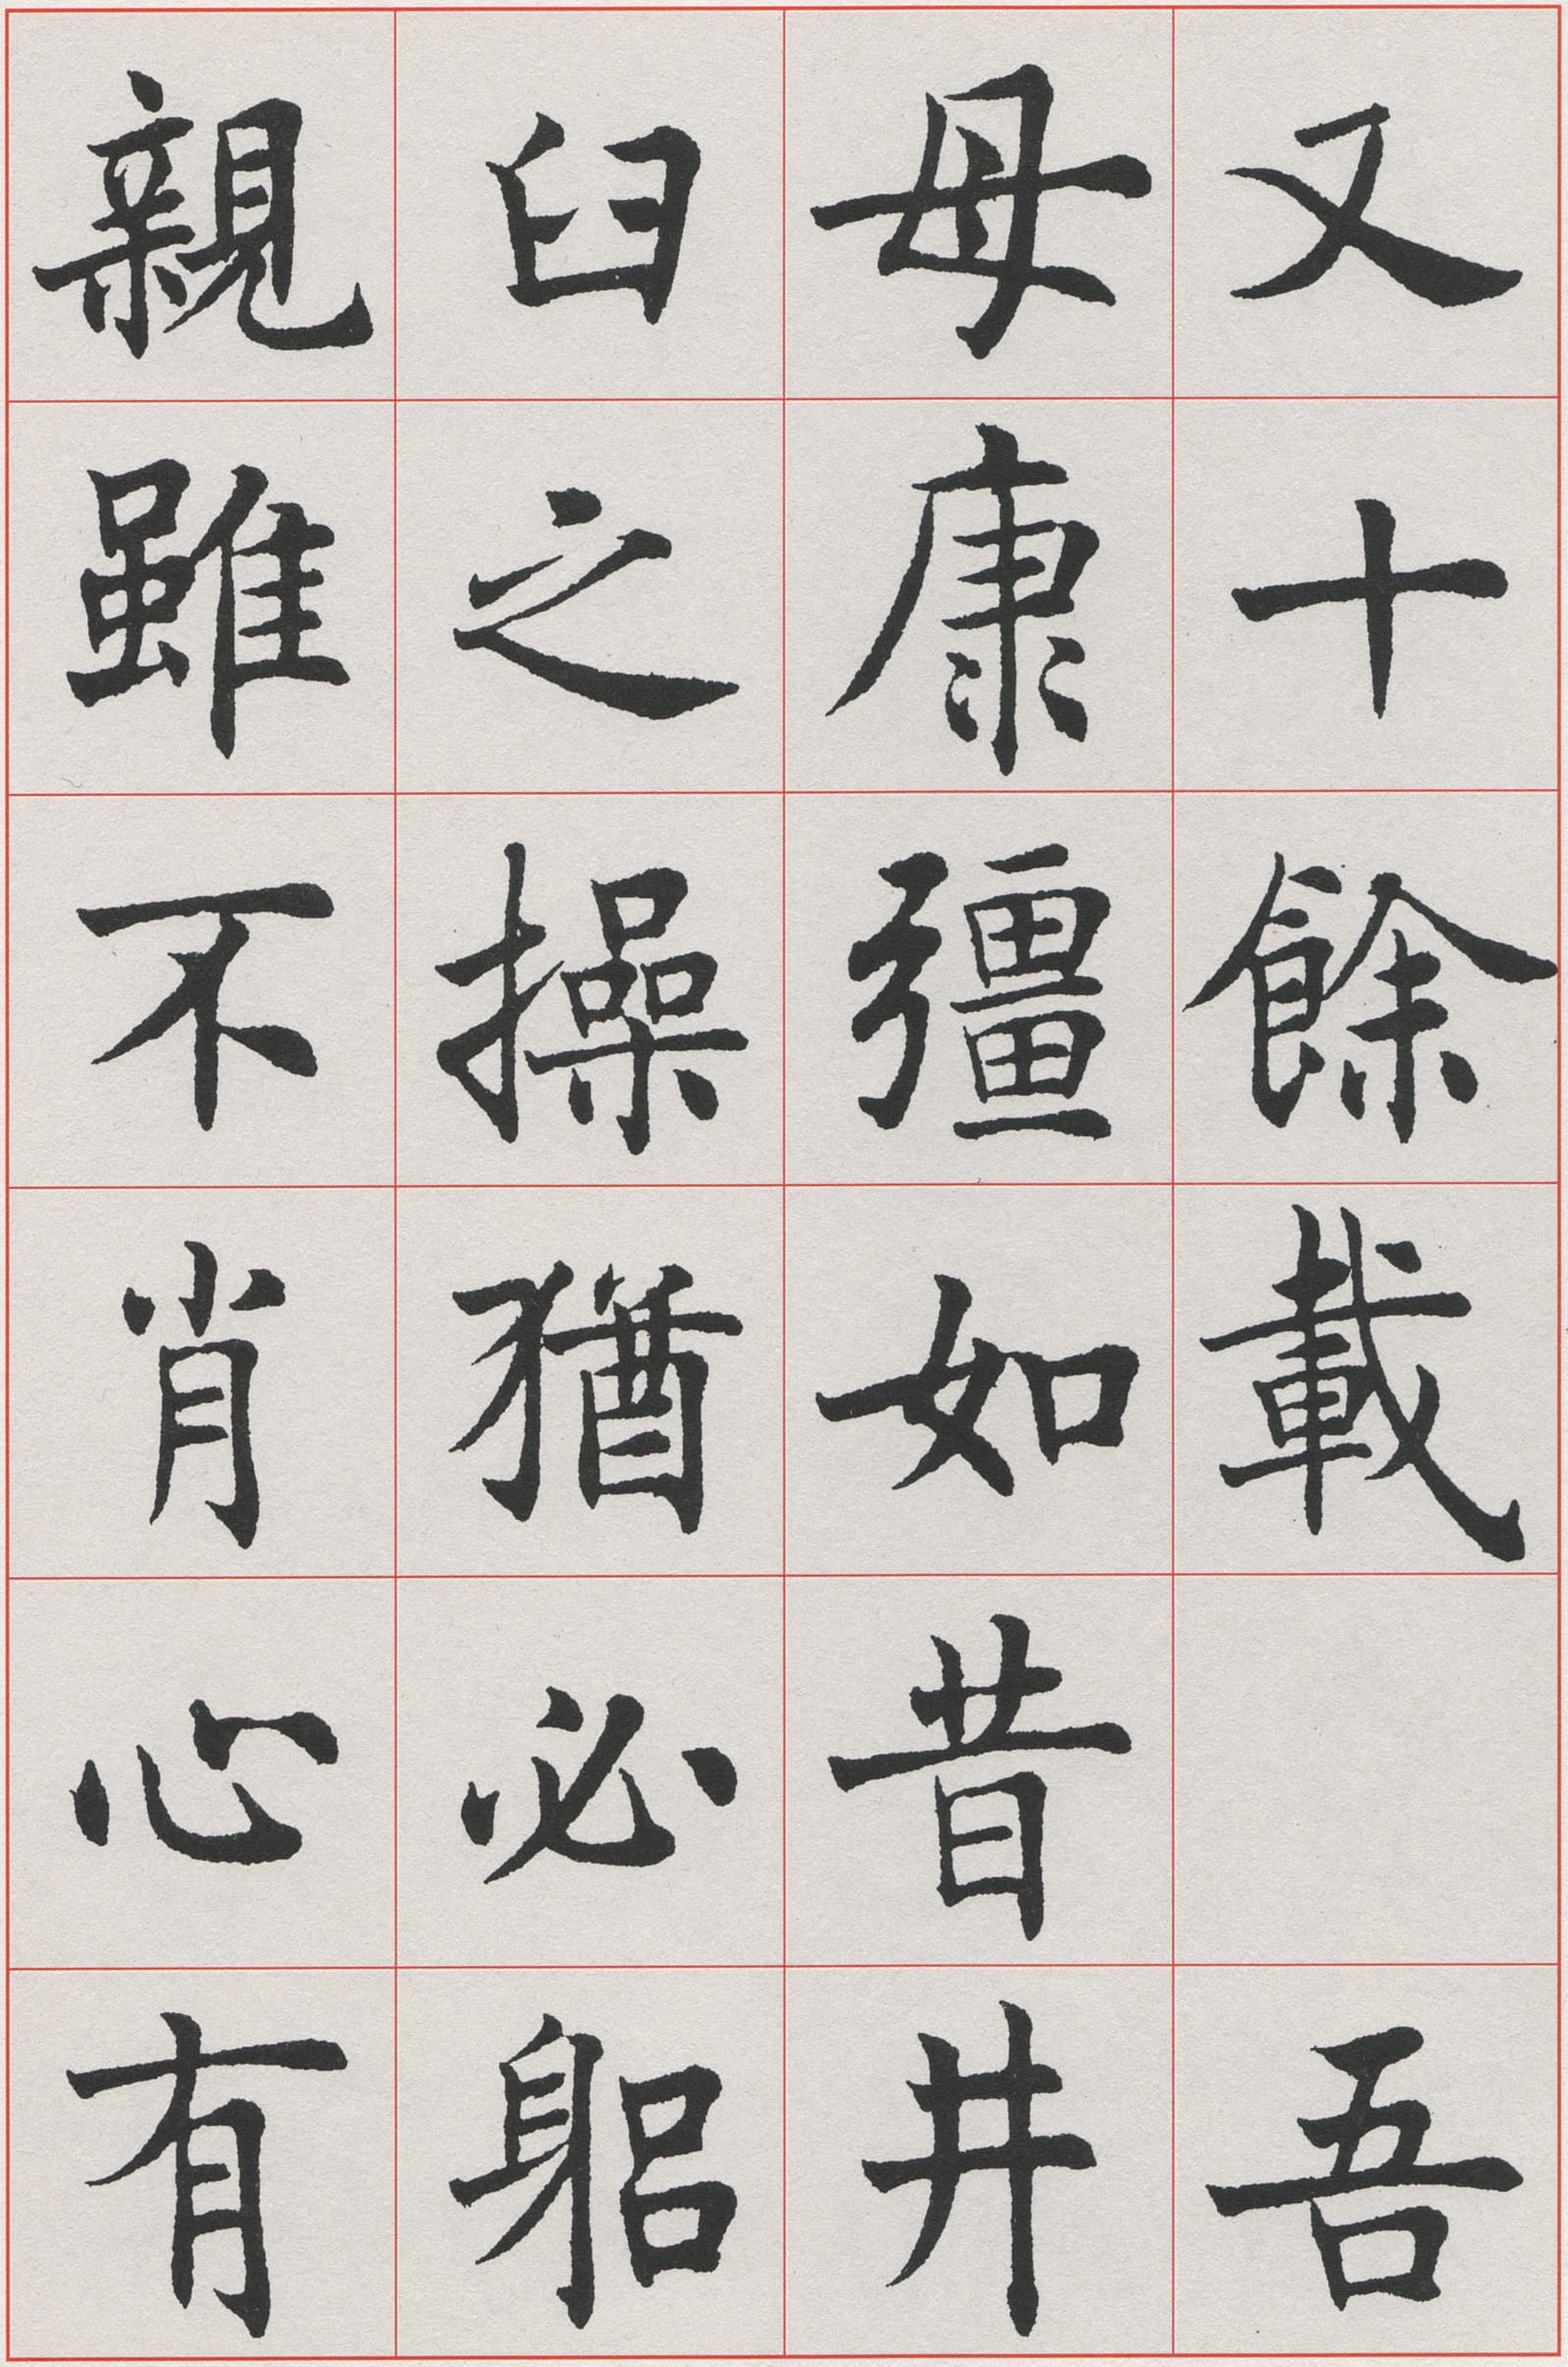 又十餘載 吾
母康彊如昔井
臼之操猶必躳
親雖不肖心有